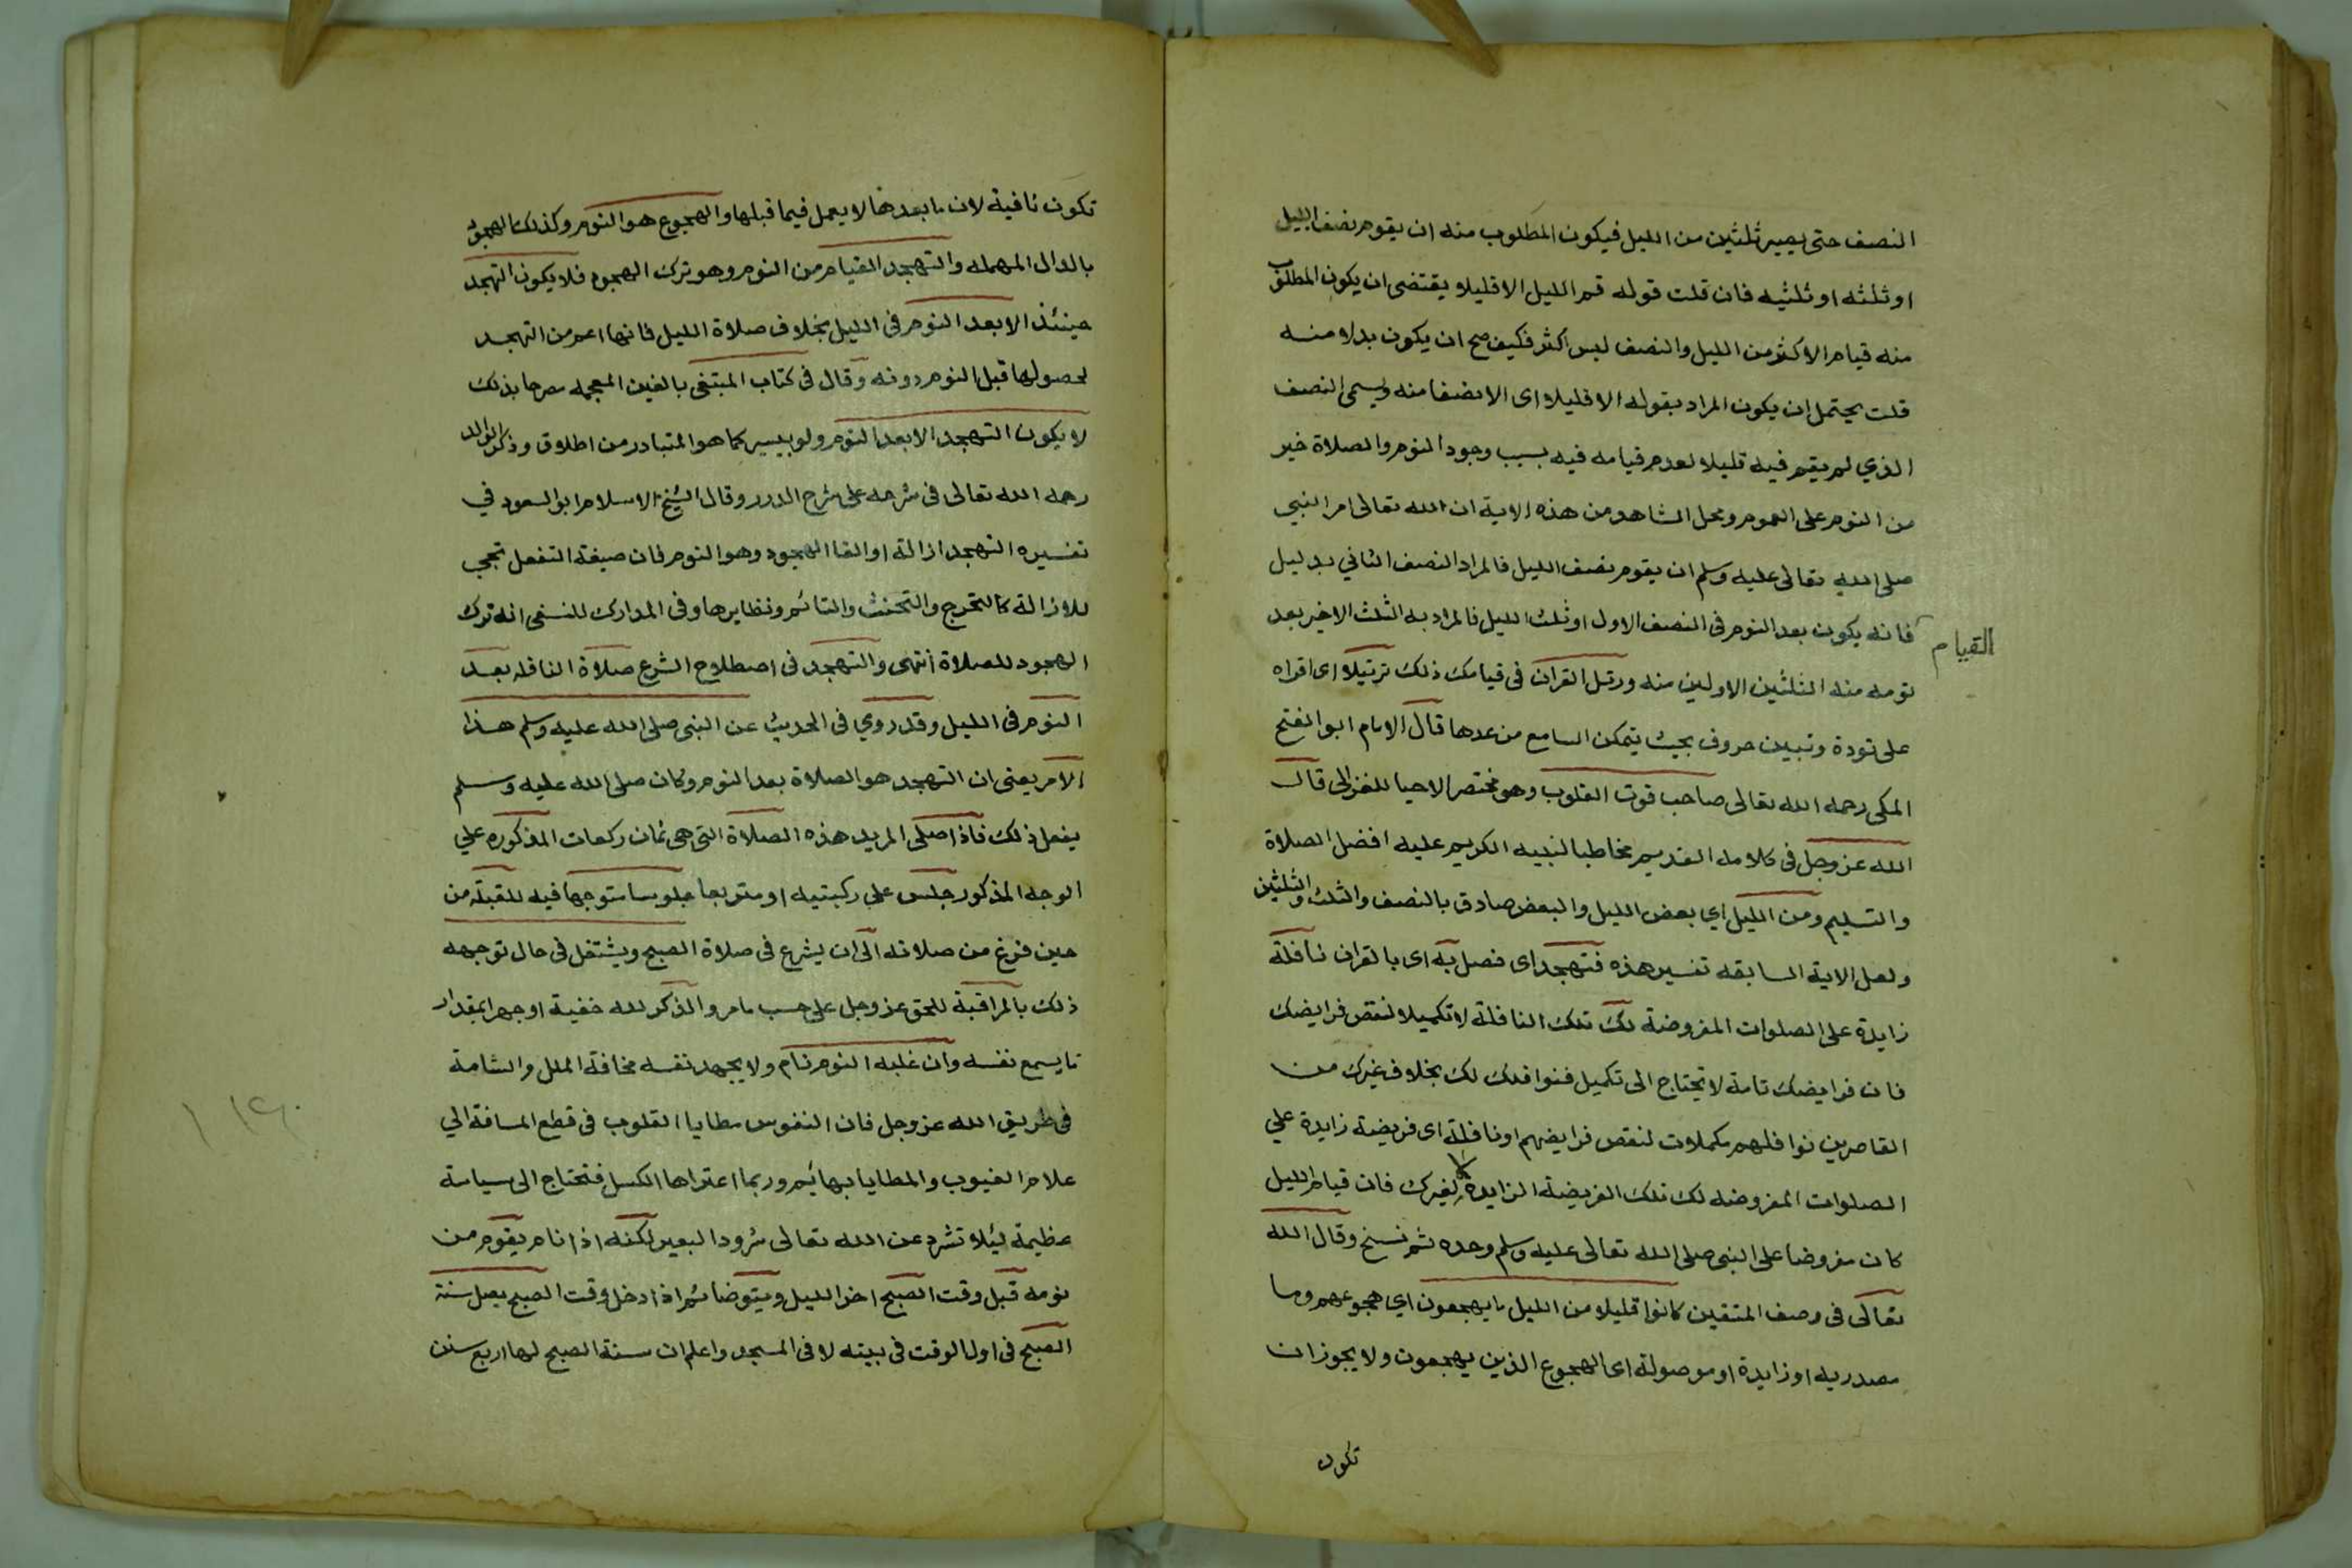 النصف حتى يصير ثلثين من الليل فيكون المطلوب منه ان يقوم نصف الليل
او ثلثه او ثلثيه فان قلت قوله قم الليل الا قليلا يقتضى ان يكون المطلوب
منه قيام الاكثر من الليل والنصف ليس اكثر فكيف صح ان يكون بدلا منه
قلت يحتمل ان يكون المراد بقوله الا قليلا اى الا نصفا منه ويسمى النصف
الذي لم يقم فيه قليلا لعدم قيامه فيه بسبب وجود النوم والصلاة خير
من النوم على العموم ومحل الشاهد من هذه الاية ان الله تعالى امر النبي
صلى الله تعالى عليه وسلم ان يقوم نصف الليل فالمراد النصف الثاني بدليل
القيام
فانه يكون بعد النوم فى النصف الاول او ثلث الليل فالمراد به الثلث الاخير بعد
نومه منه الثلثين الاولين منه ورتل القران فى قيامك ذلك ترتيلا اى اقراه
على تودة وتبيين حروف بحيث يتمكن السامع من عدها قال الامام ابو الفتح
المكى رحمه الله تعالى صاحب قوت القلوب وهو مختصر الاحيا للغزالى قال
الله عز وجل فى كلامه القديم مخاطبا لنبيه الكريم عليه افضل الصلاة
والتسليم ومن الليل اي بعض الليل والبعض صادق بالنصف والثلث والثلثين
ولعل الاية السابقه تفسير هذه فتهجد اى فصل به اى بالقران نافلة
زايدة على الصلوات المفروضة لك تلك النافلة لا تكميلا لنقص فرايضك
فان فرايضك تامة لا تحتاج الى تكميل فنوافلك لك بخلاف غيرك من
القاصرين نوافلهم مكملات لنقص فرايضهم او نافلة اى فريضة زايدة علي
الصلوات المفروضه لك تلك الفريضة الزايدة لا لغيرك فان قيام الليل
كان مفروضا على النبى صلى الله تعالى عليه وسلم وحده ثم نسخ وقال الله
تعالى فى وصف المتقين كانوا قليلا من الليل ما يهجعون اي هجوعهم وما
مصدريه او زايدة او موصولة اى الهجوع الذين يهجعون ولا يجوز ان
تكون
تكون نافية لان ما بعدها لا يعمل فيما قبلها والهجوع هو النوم وكذلك الهجود
بالدال المهمله والتهجد القيام من النوم وهو ترك الهجود فلا يكون التهجد
حينئذ الا بعد النوم فى الليل بخلاف صلاة الليل فانها اعم من التهجد
لحصولها قبل النوم دونه وقال فى كتاب المبتغى بالغين المعجمه صرحا بذلك
لا يكون التهجد الا بعد النوم ولو بيسير كما هو المتبادر من اطلاق وذكر الوالد
رحمه الله تعالى فى شرحه على شرح الدرر وقال الشيخ الاسلام ابو السعود في
تفسيره التهجد ازالة او القا الهجود وهو النوم فان صيغة التفعل تجي
للازالة كالتحرج والتحنث والتاثم ونظايرها وفى المدارك للنسفى انه ترك
الهجود للصلاة انتهى والتهجد فى اصطلاح الشرع صلاة النافله بعد
النوم فى الليل وقد روي فى الحديث عن النبى صلى الله عليه وسلم هذا
الامر يعنى ان التهجد هو الصلاة بعد النوم وكان صلى الله عليه وسلم
يفعل ذلك فاذا صلى المريد هذه الصلاة التى هى ثمان ركعات المذكوره علي
الوجه المذكور جلس على ركبتيه او متربعا جلوسا متوجها فيه للقبلة من
حين فرغ من صلاته الى ان يشرع فى صلاة الصبح ويشتغل فى حال توجهه
ذلك بالمراقبة للحق عز وجل على حسب ما مر والذكر لله خفية او جهرا بمقدار
ما يسمع نفسه وان غلبه النوم نام ولا يجهد نفسه مخافة الملل والسامة
فى طريق الله عز وجل فان النفوس مطايا القلوب فى قطع المسافة الي
علام الغيوب والمطايا بهائم وربما اعتراها الكسل فتحتاج الى سياسة
عظيمة ليلا تشرد عن الله تعالى شرود البعير لكنه اذا نام يقوم من
نومه قبل وقت الصبح اخر الليل ويتوضا ثم اذا دخل وقت الصبح يصل سنة
الصبح فى اول الوقت فى بيته لا فى المسجد واعلم ان سنة الصبح لها اربع سنن